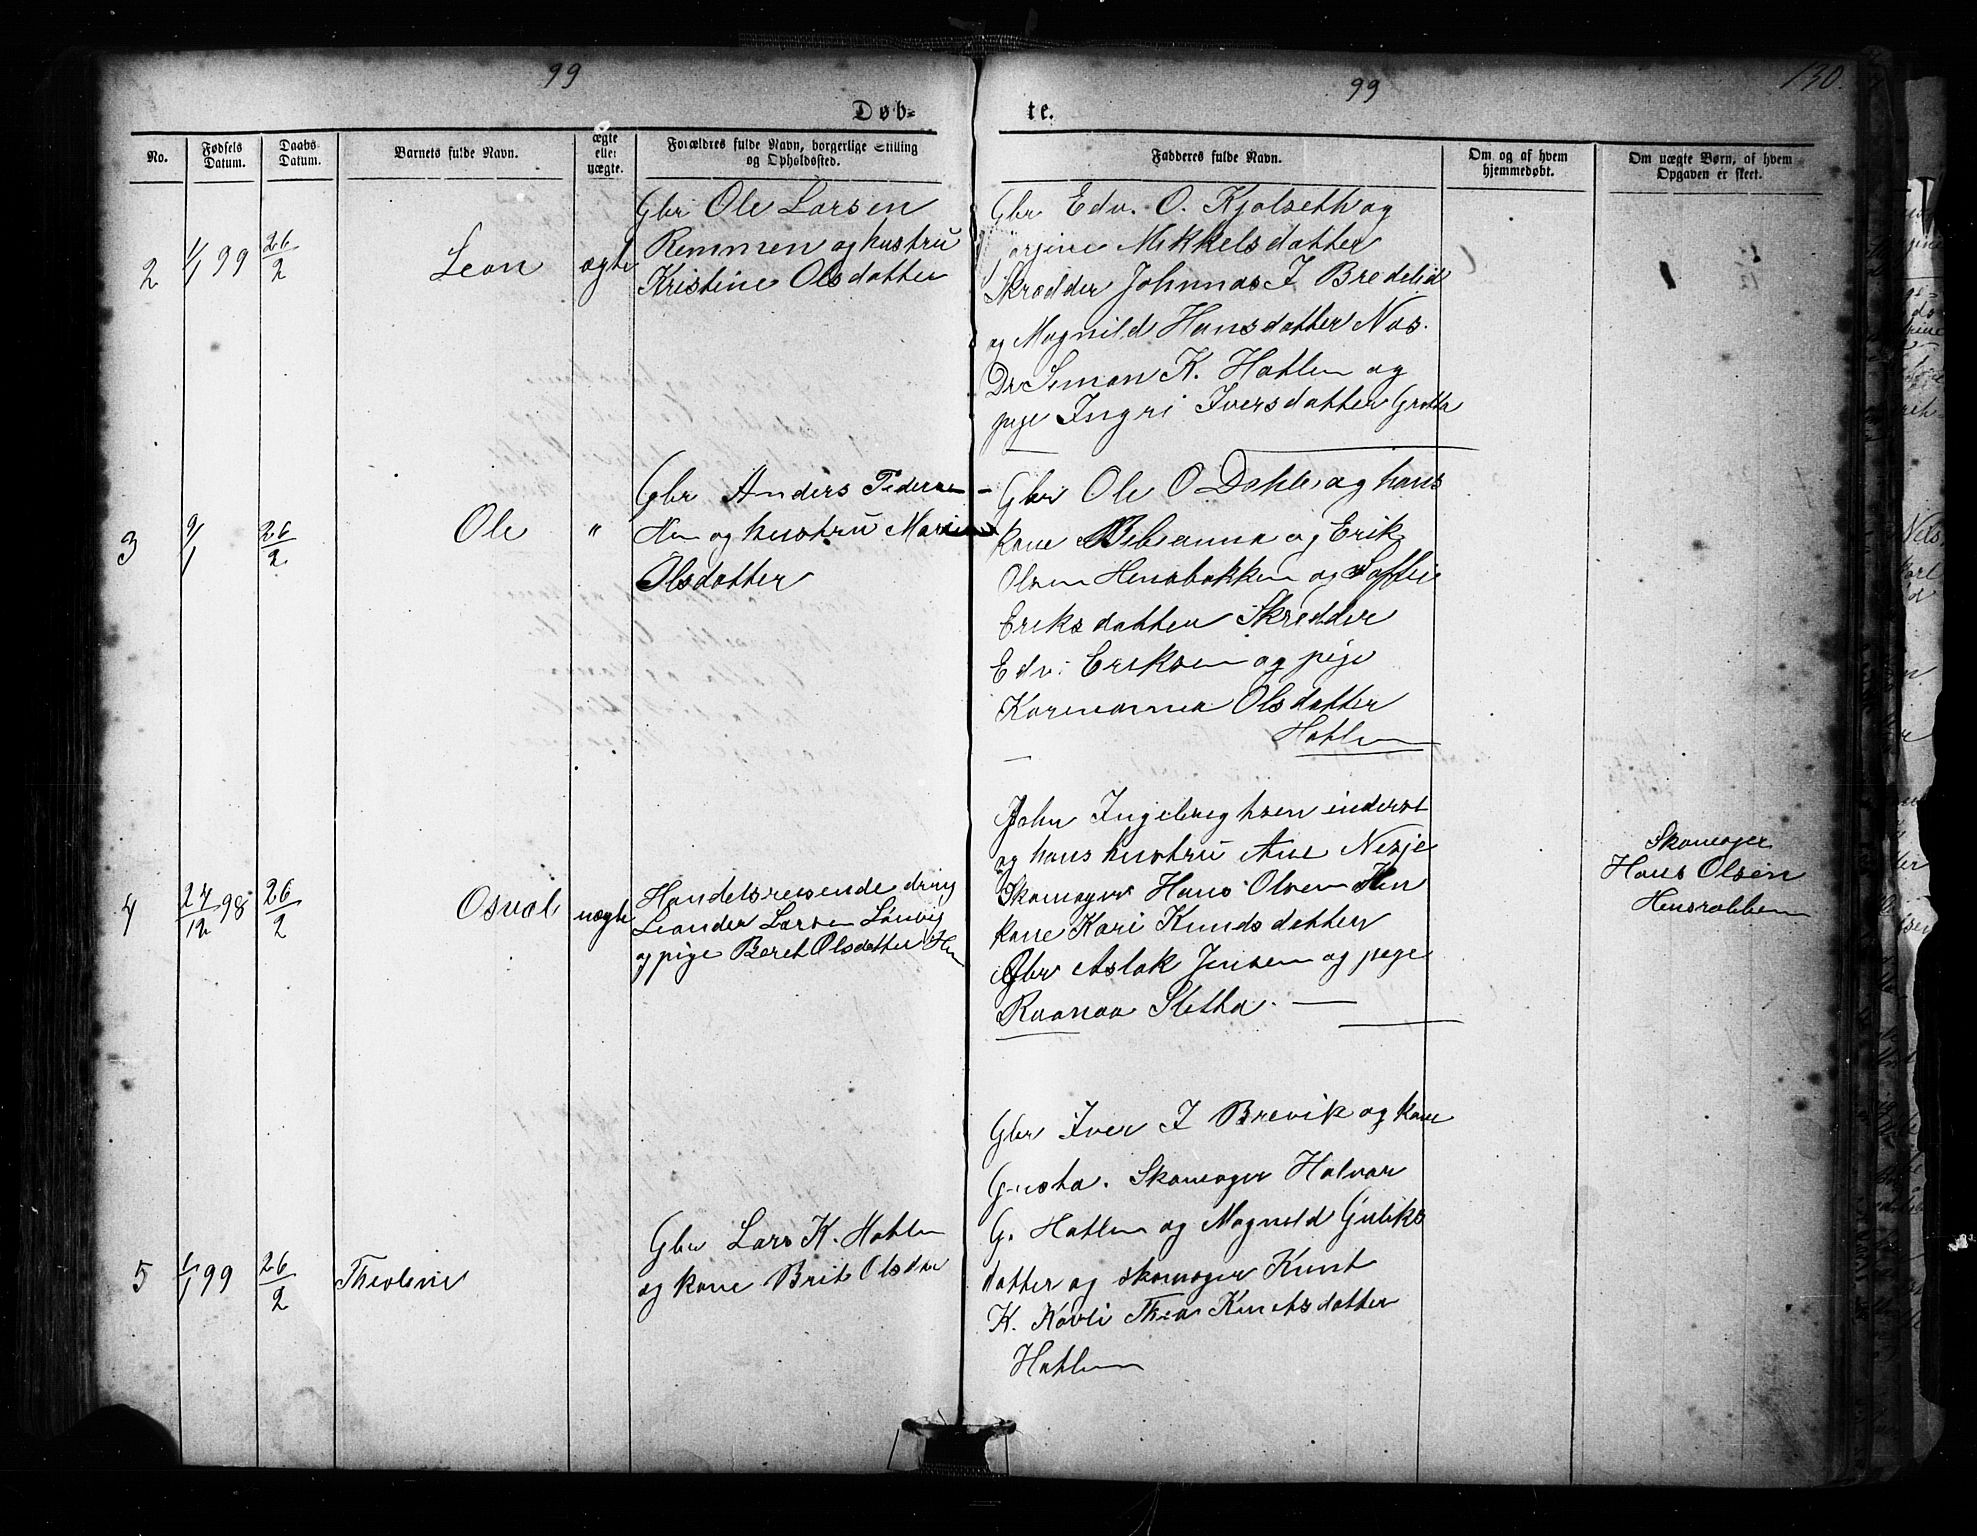 99
99
130.
Døb=
te.
No.
Fødsels Datum.
Daabs Datum.
Barnets fulde Navn.
ægte eller uægte.
Forældres fulde Navn, borgerlige Stilling og Opholdssted.
Faddernes fulde Navn.
Om og af hvem hjemmedøbt.
Om uægte Børn, af hvem Opgaven er skeet.
2
1/1 99
26/2
Leon
ægte
Gbr Ole Larsen
Remmen og hustru
Kristine Olsdatter
Gbr Edv. O. Kjølseth og
Jørgine Mekkelsdatter
Skrædder Johnnas I Bredelid
og Magnild Hansdatter Nøs.
Dr Simon K. Hatlen og
pige Ingri Iversdatter Grøtta
3
9/1
26/2
Ole
"
Gbr Anders Pedersen
Hen og hustru
Olsdatter
Gbr Ole O Dahle og hans
kone Bibianna og Erik
Olsen Hensbakken og Soffie
Eriksdatter Skredder
Edv. Eriksen og pige
Karenanna Olsdatter
Hatlen
4
27/12 98
26/2
Osval
uægte
Handelsreisende dreng
Leander Larsen Lønvig
og pige Beret Olsdatter Hen
John Ingebreghtsen inderst
og hans hustru Ane Nesje
Skomager Hans Olsen Hen
kone Kari Knudsdatter
Gbr Aslak Jensen og pige
Sletta.
Skomager
Hans Olsen
5
99
26/2
Theoline
Gbr Lars K. Hatlen
og kone Brit Olsdtr
Gbr Iver I Brevik og kone
Gusta. Skomager Halvar
G. Hatlen og Magnild Guliks
datter og skomager Knut
K. Kavli Thea Knutsdatter
Hatlen